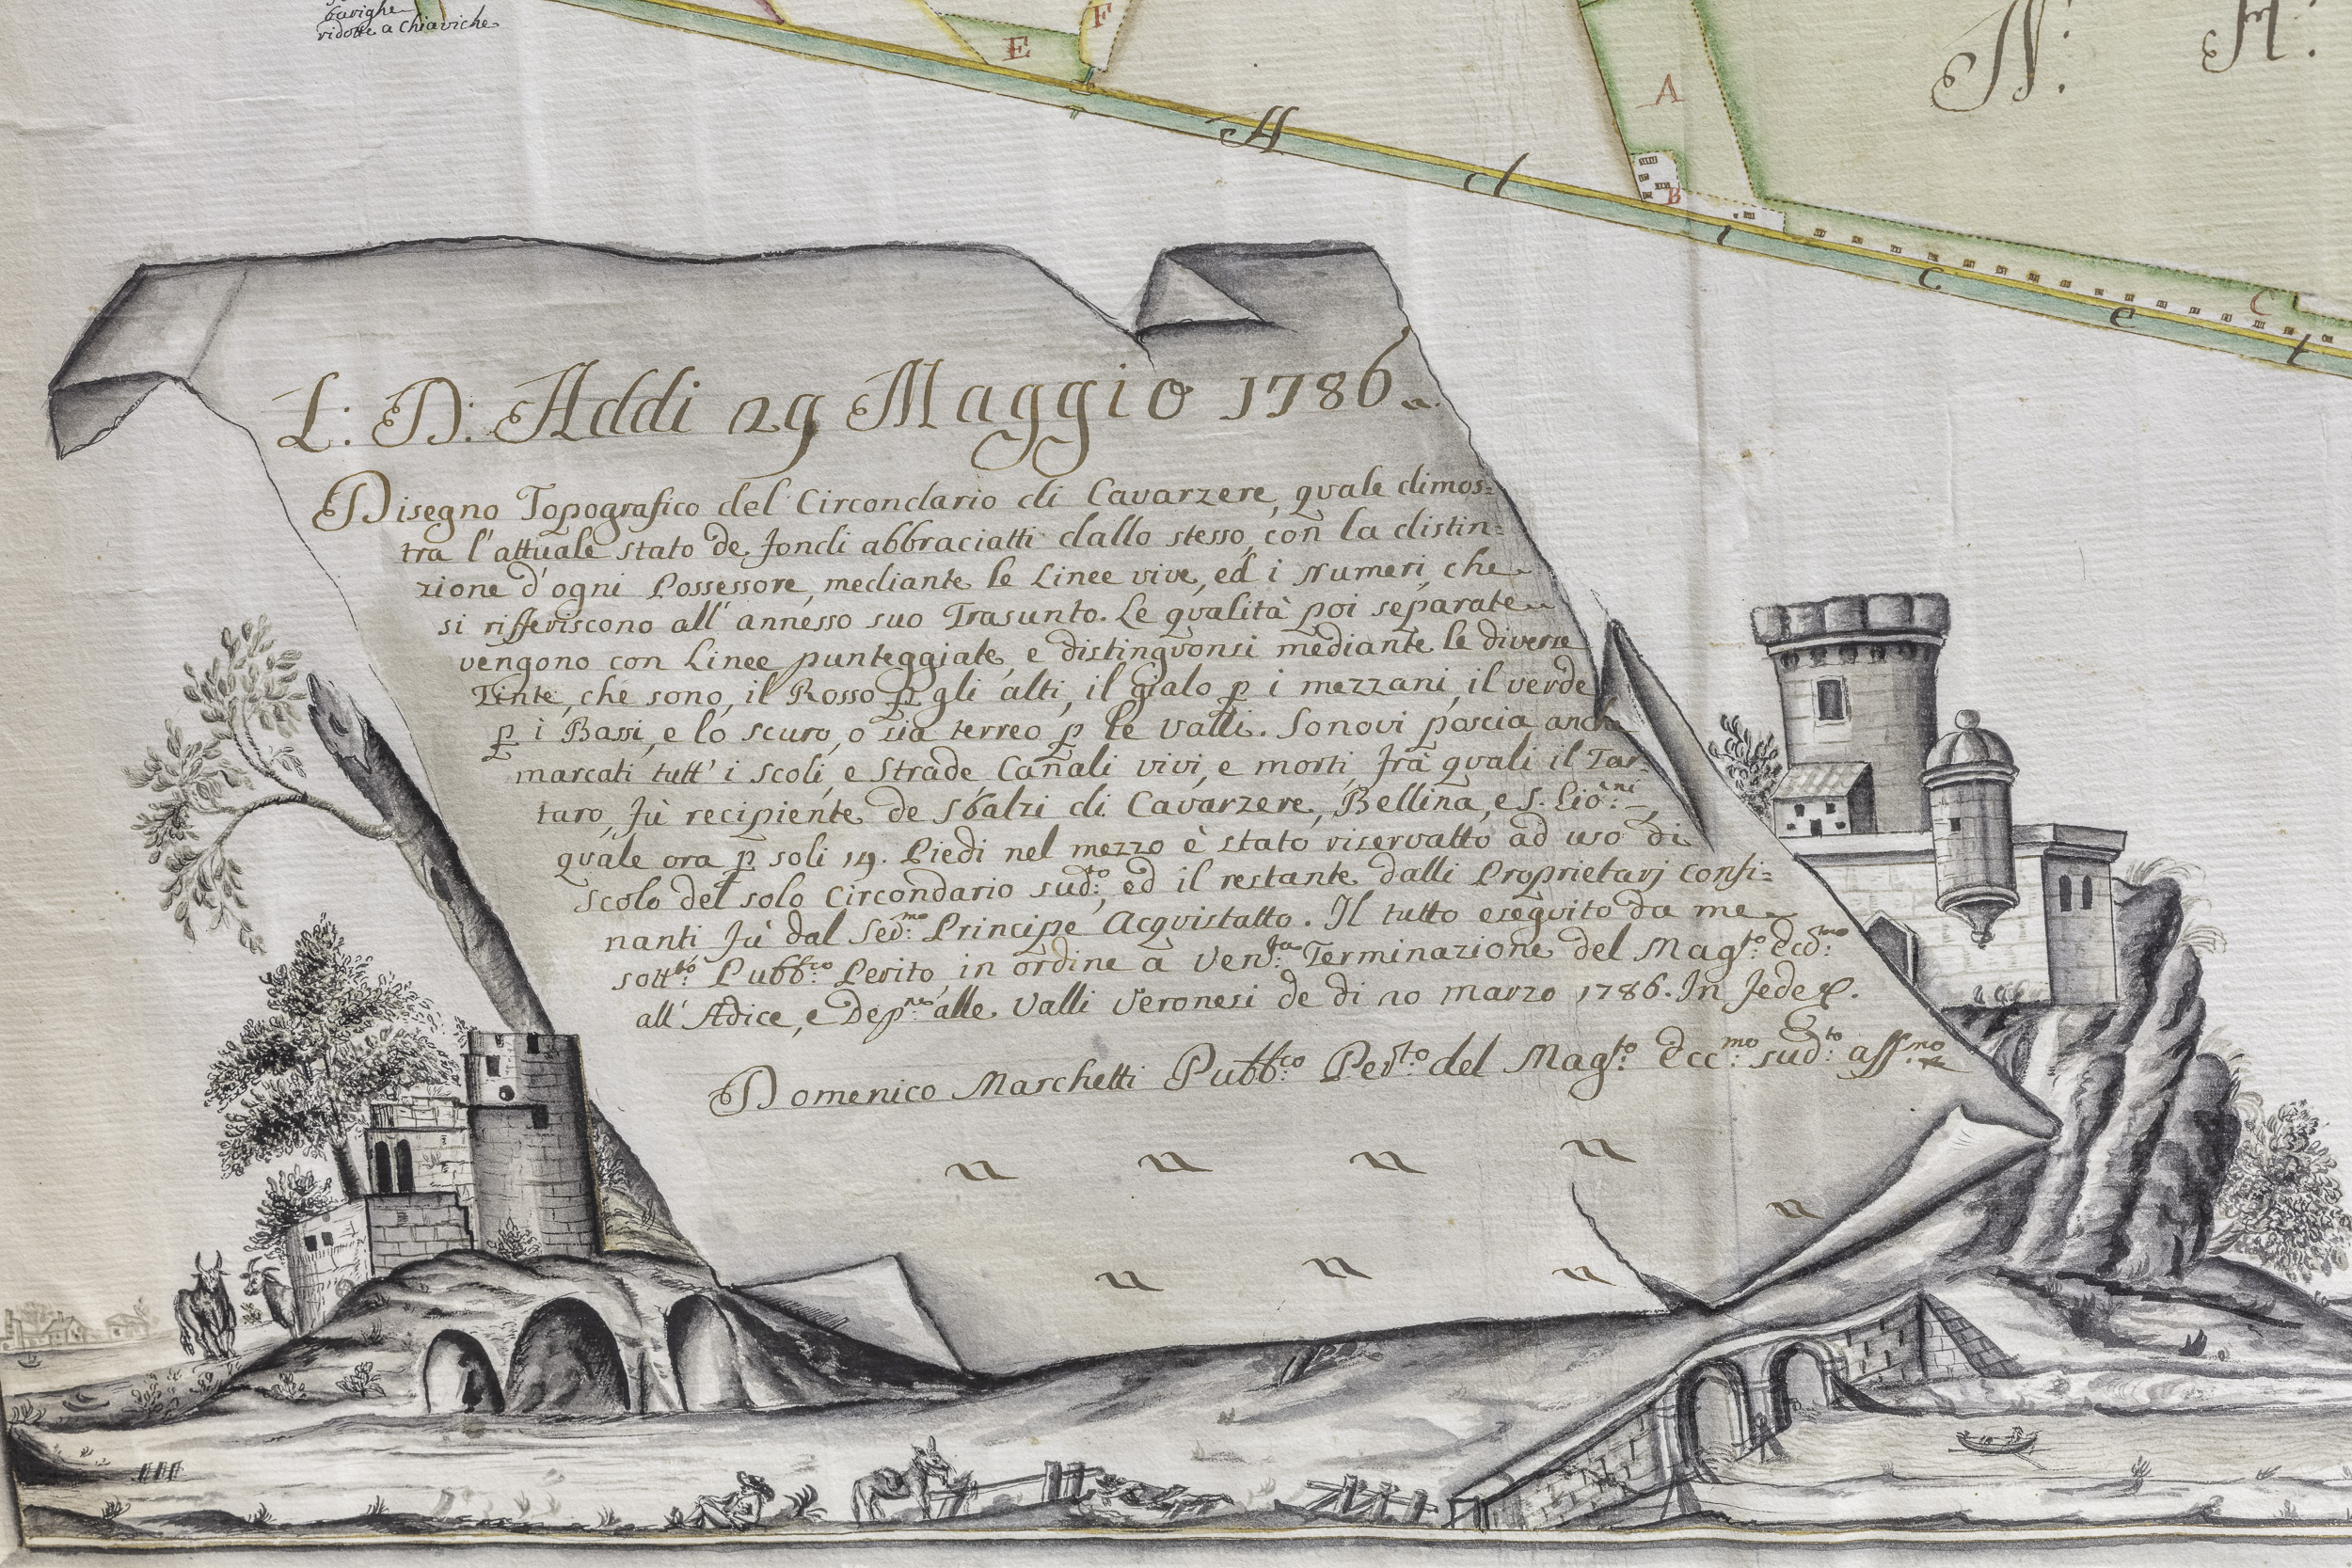 Gavighe
ridotte a Chiaviche
E
F
A
B
C
N: A:
A d i c e t
L: D: Addi 29 Maggio 1786.
Disegno Topografico del Circondario di Cavarzere, quale dimos=
tra l'attuale stato de fondi abbraciatti dallo stesso, con la distin=
zione d'ogni Possessore, mediante le Linee vive, ed i Numeri, che
si rifferiscono all'annesso suo Trasunto. Le qualità poi separate
vengono con Linee punteggiate, e distinguonsi mediante le diverse
Tinte, che sono, il Rosso p gli alti, il gialo p i mezzani, il verde
p i Bassi, e lo scuro, o sia terreo p le Valli. Sonovi poscia anche
marcati tutt' i scoli, e Strade Canali vivi, e morti, frà quali il Tar-
taro, fù recipiente de Sbalzi di Cavarzere, Bellina, e S. Gio:ni,
quale ora p soli 19. Piedi nel mezzo è stato riservatto ad uso di
Scolo del solo Circondario sud:to, ed il restante dalli Proprietarj confi=
nanti fù dal Ser:mo Principe Acquistatto. Il tutto eseguito da me
sott:to Pubb:co Perito, in ordine à Ven:ta Terminazione del Mag:to Ecc:mo
all' Adice, e Dep:ne alle Valli Veronesi de dì 10 marzo 1786. In fede &.
Domenico Marchetti Pubb:co Per:to del Mag:to Ecc:mo sud:to aff:mo